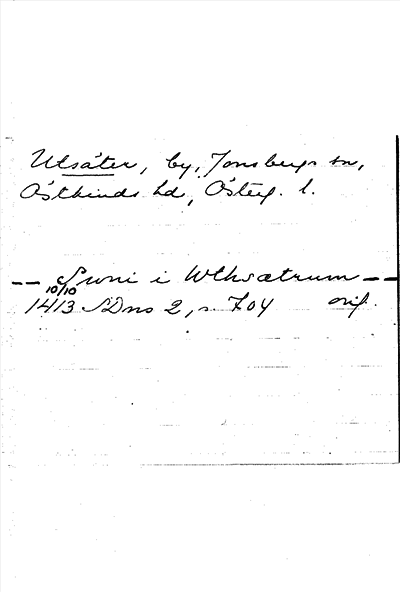 Utsäter, by, Jonsbergs sn,
Östkinds hd, Österg. l.
-- Suni i Wthsætrum --
10/10
1413 SDns 2, s. 704 orig.